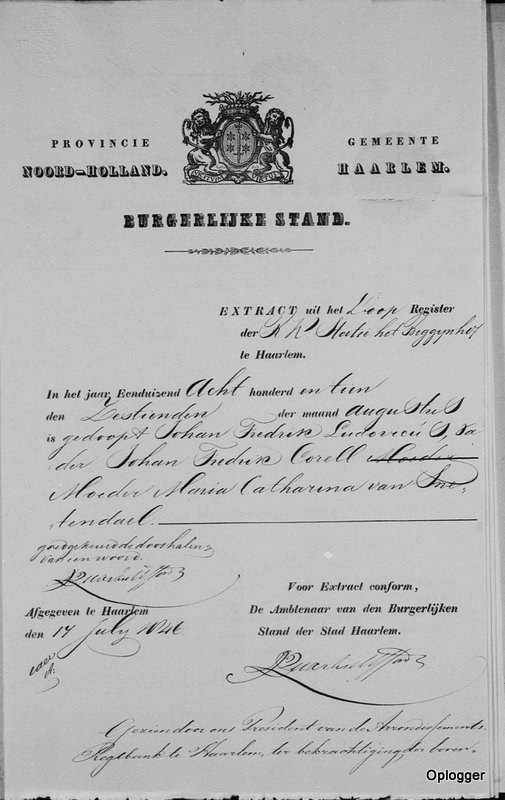 PROVINCIE
NOORD-HOLLAND.
GEMEENTE
HAARLEM.
BURGERLIJKE STAND.
EXTRACT uit het Doop Register
der R. K. Statie het Beggynhof
te Haarlem.
In het jaar Eenduizend Acht honderd en tien
den Zestienden der maand Augustus
is gedoopt Johan Fredrik Ludovicus, Va
der Johan Fredrik Corell Moeder
Moeder Maria Catharina van Sne-
tendael.
goedgekeurd de doorhaling
van een woord.
Afgegeven te Haarlem
den 17 July 1846
Voor Extract conform,
De Ambtenaar van den Burgerlijken
Stand der Stad Haarlem.
Gezien door ons President van de Arrondissements
Regtbank te Haarlem, ter bekrachtiging der boven-
Oplogger